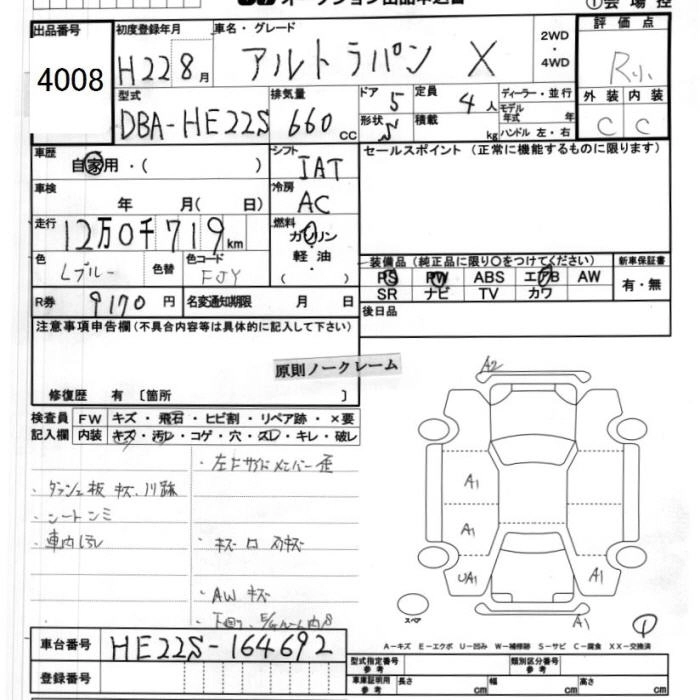 ①会場控
出品番号
4008
初度登録年月
H22 8月
車名・グレード
アルトラパン X
2WD
・
4WD
評価点
R小
外装 内装
C C
型式
DBA-HE22S
排気量
660 cc
ドア 5
定員 4人
ディーラー・並行
形状 5
積載 kg
モデル年式 年
ハンドル 左・右
車歴
自家用・( )
シフト
IAT
セールスポイント (正常に機能するものに限ります)
車検
年 月( 日)
冷房
AC
走行
12万0千719km
燃料
ガソリン
軽油
( )
色
Lブルー
色替
色コード
FJY
装備品 (純正品に限り○をつけてください)
新車保証書
PS PW ABS エアB AW
SR ナビ TV カワ
有・無
R券 9170円
名変通知期限 月 日
後日品
注意事項申告欄 (不具合内容等は具体的に記入して下さい)
原則ノークレーム
修復歴 有 〔箇所 〕
検査員記入欄
FW キズ・飛石・ヒビ割・リペア跡・×要
内装 キズ・汚レ・コゲ・穴・スレ・キレ・破レ
・左Fサイドメンバー歪
・ダッシュ板 キズ
・シートシミ
・車内汚レ
・AW キズ
A2
A1
A1
UA1
A1
A1
スペア
①
車台番号 HE22S-164692
登録番号
A-キズ E-エクボ U-凹み W-補修跡 S-サビ C-腐食 XX-交換済
型式指定番号 参考
類別区分番号 参考
車庫証明用 参考
長さ cm 幅 cm 高さ cm